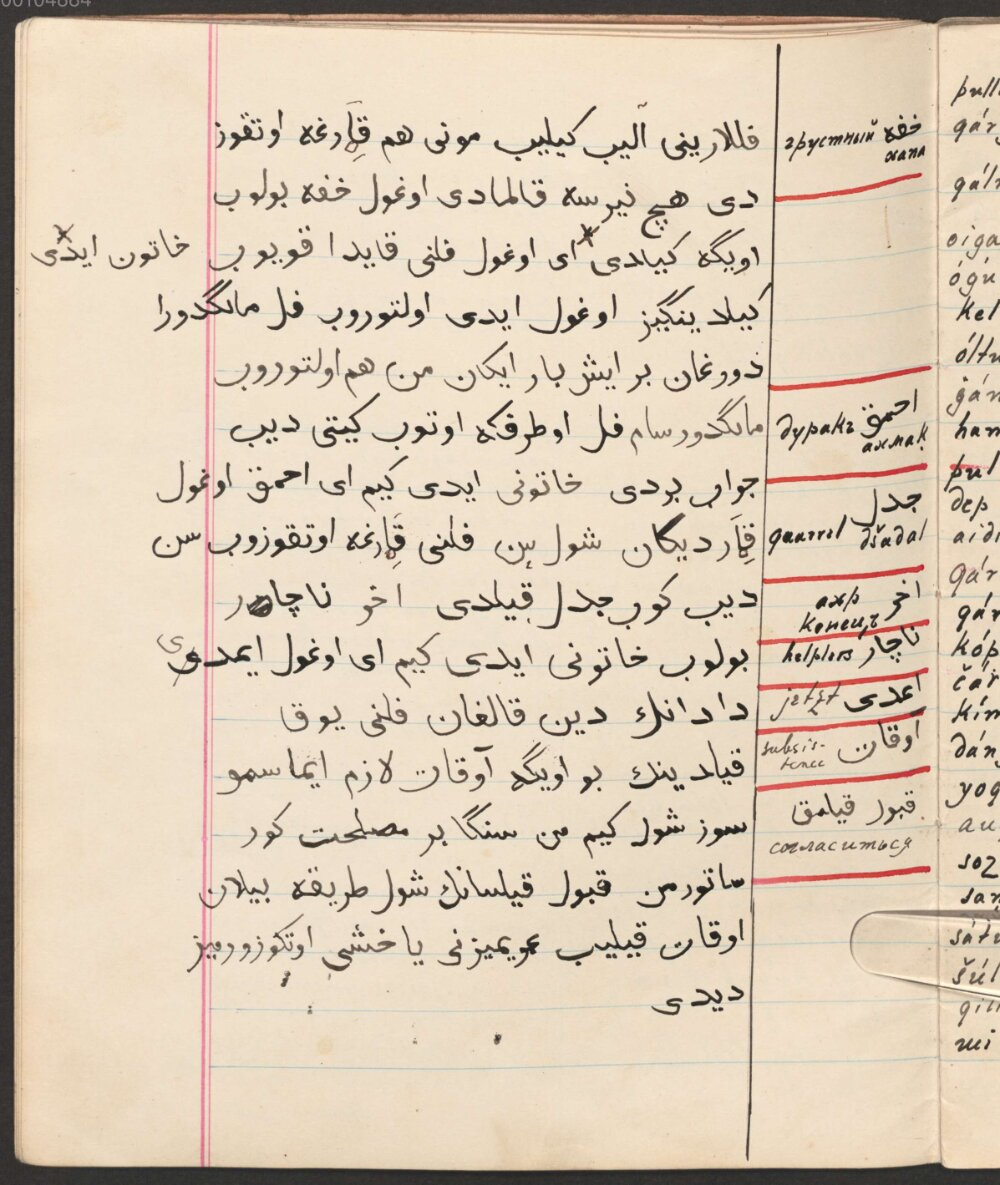 فللارینی الیب کیلیب مونی هم قارغه اوتقوز
دی هیچ نیرسه قالمادی اوغول خفه بولوب
اویگه کیلدی * ای اوغول فلنی قایدا قویوب
* خاتون ایدی
کیلدینگیز اوغول ایدی اولتوروب فل مانگدورا
دورغان بر ایش بار ایکان من هم اولتوروب
مانگدورسام فل اوطرفکه اوتوب کیتی دیب
جواب بردی خاتونی ایدی کیم ای احمق اوغول
قمار دیگان شول من فلنی قارغه اوتقوزوب سن
دیب کوب جدل قیلدی اخر ناچار
بولوب خاتونی ایدی کیم ای اوغول ایمدی
دادانك دین قالغان فلنی یوق
قیلدینك بو اویگه آوقات لازم ایماسمو
سوز شول کیم من سنگا بر مصلحت کور
ساتورمن قبول قیلسانك شول طریقه بیلان
اوقات قیلیب عمریمیزنی یاخشی اوتکوزورمیز
دیدی
خفه
грустный
хапа
احمق
дуракъ
ахмақ
جدل
quarrel
džadal
اخر
ахр
конецъ
ناچار
helpless
ایمدی
jetzt
اوقات
subsis-
tence
قبول قیلمق
согласиться
pull
qár
qál
oiga
ógú
kel
ólt
gán
ham
pul
dep
aidi
qár
qár
kóp
čár
kim
dán
yoq
soz
san
sátu
šúl
qili
mi